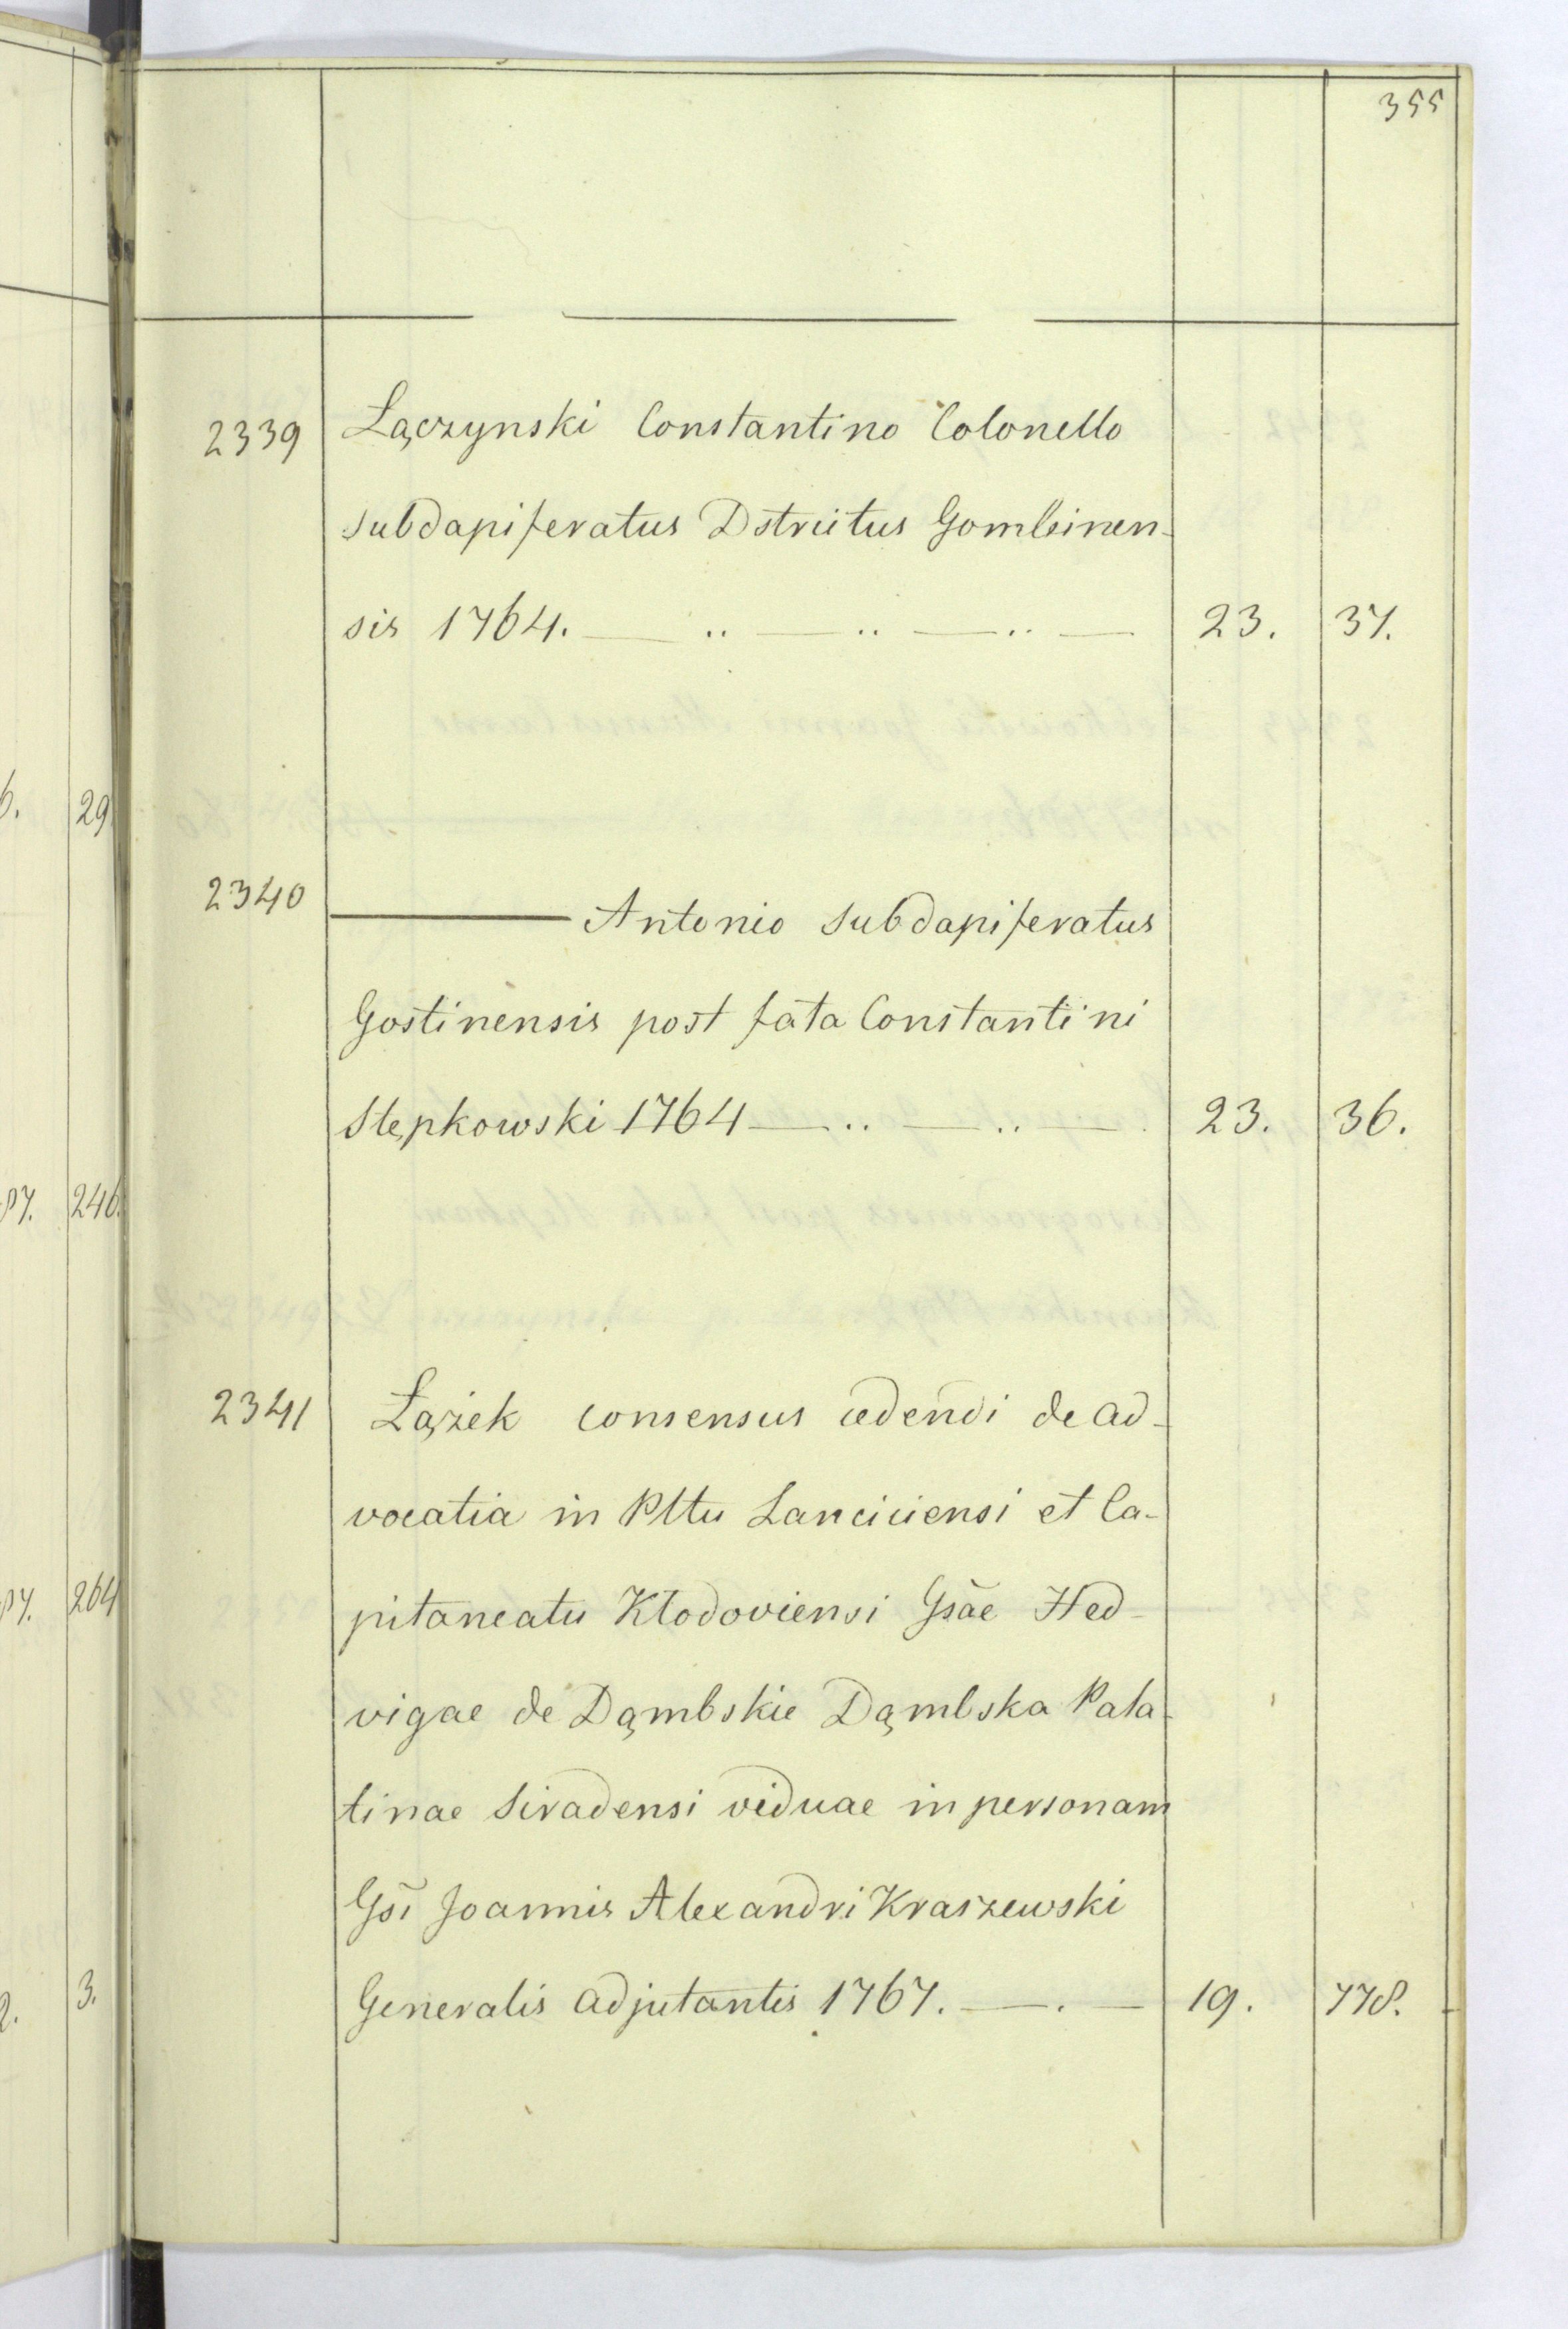 355
2339 Łączynski Constantino Colonello
subdapiferatus Dstrictus Gombinen-
sis 1764. — .. — .. — .. — 23. 37.
2340 ——— Antonio subdapiferatus
Gostinensis post fata Constantini
Stępkowski 1764 — .. — .. — 23. 36.
2341 Łążek consensus cedendi de ad-
vocatia in Pltu Lanciciensi et Ca-
pitaneatu Kłodoviensi Gsãe Hed-
vigae de Dąmbskie Dąmbska Pala-
tinae Siradensi viduae in personam
Gsĩ Joannis Alexandri Kraszewski
Generalis adjutantis 1767. — . — 19. 778.
6. 29
87. 246.
87. 264
2. 3.